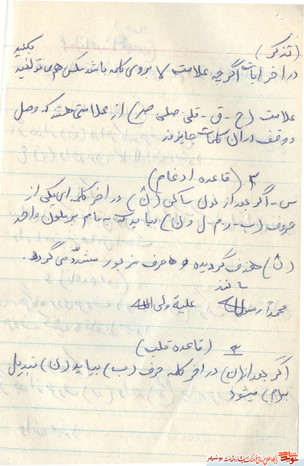 (تذکر)
در اخر ایات اگر چه علامت لا بر روی کلمه باشد سکن هم می توانید بکنید
علامت (ج - ق - قلی صلی ص) از علامتی هستند که وصل
و وقف در ان کلمات جایز است
۲ (قاعده ادغام)
س - اگر بعد از نون ساکن (نْ) در اخر کلمه ای یکی از
حروف (ب - ر - م - ل و ن) بیاید که به نام یرملون واحد
(نْ) حذف گردیده و حرف مزبور مشدد می گردد.
محمد رسول الله علیه ولی الله
۳ (قاعده قلب)
اگر بعد از (ن) در اخر کلمه حرف (ب) بیاید (ن) تبدیل
به (م) میشود